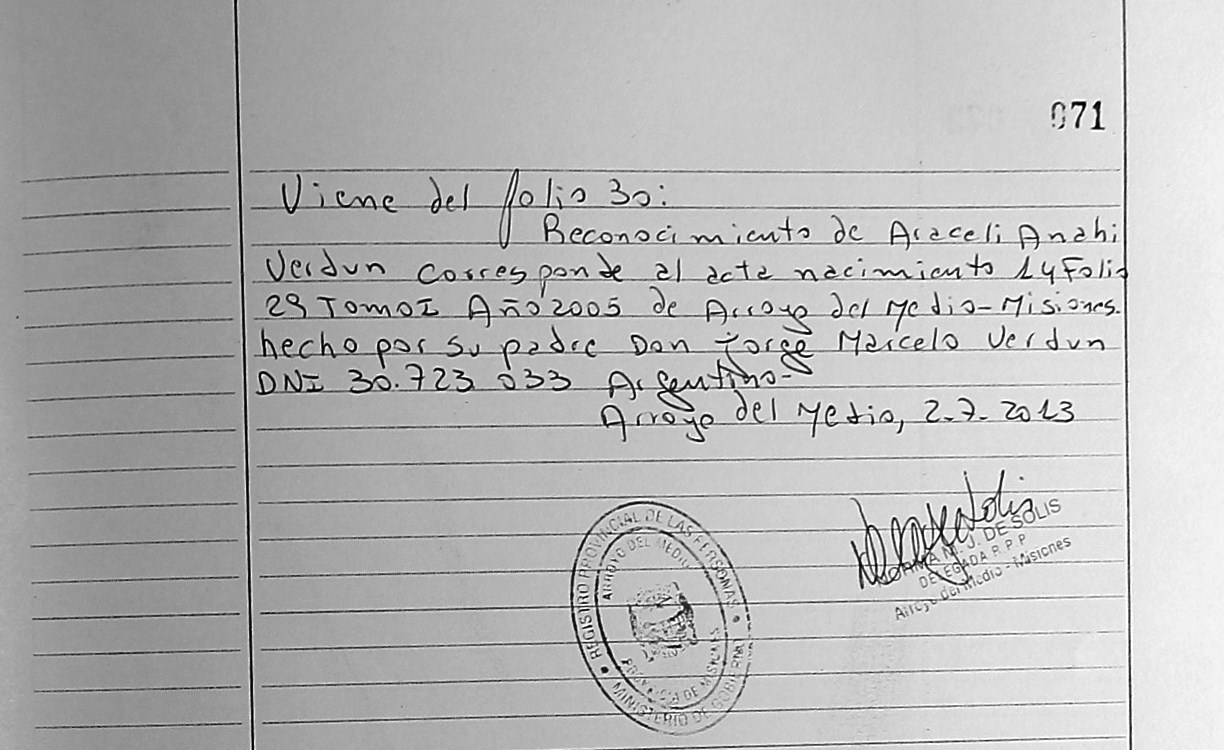 071
Viene del folio 30:
Reconocimiento de Araceli Anahi
Verdun corresponde al acta nacimiento 14 Folio
29 Tomo I Año 2005 de Arroyo del Medio-Misiones.
hecho por su padre Don Jorge Marcelo Verdun
DNI 30.723.033 Argentino-
Arroyo del Medio, 2-7-2013
M. J. DE SOLIS
DELEGADA R P P
Arroyo del Medio - Misiones
REGISTRO PROVINCIAL DE LAS PERSONAS
ARROYO DEL MEDIO
PROVINCIA DE MISIONES
MINISTERIO DE GOBIERNO